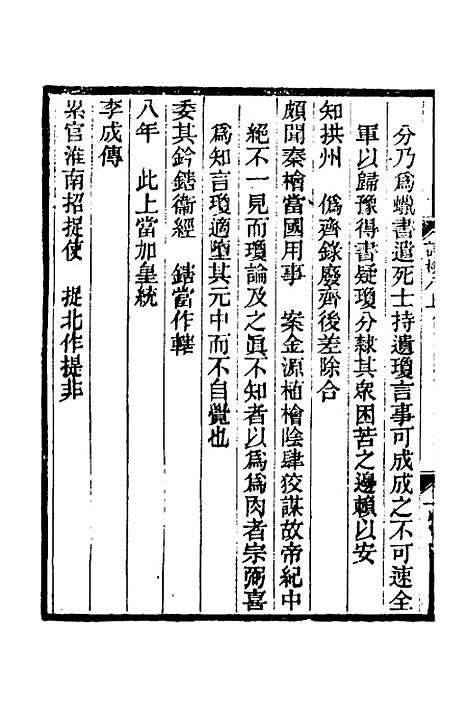 分乃爲蠟書遣死士持遺瓊言事可成成之不可速全
軍以歸豫得書疑瓊分隸其衆困苦之邊賴以安
知拱州　僞齊錄廢齊後差除合
頗聞秦檜當國用事　案金源植檜陰肆狡謀故帝紀中
絕不一見而瓊論及之眞不知者以爲爲肉者宗弼喜
爲知言瓊適墮其元中而不自覺也
委其鈐鎋衞經　鎋當作轄
八年　此上當加皇統
李成傳
累官淮南招捉使　捉北作提非